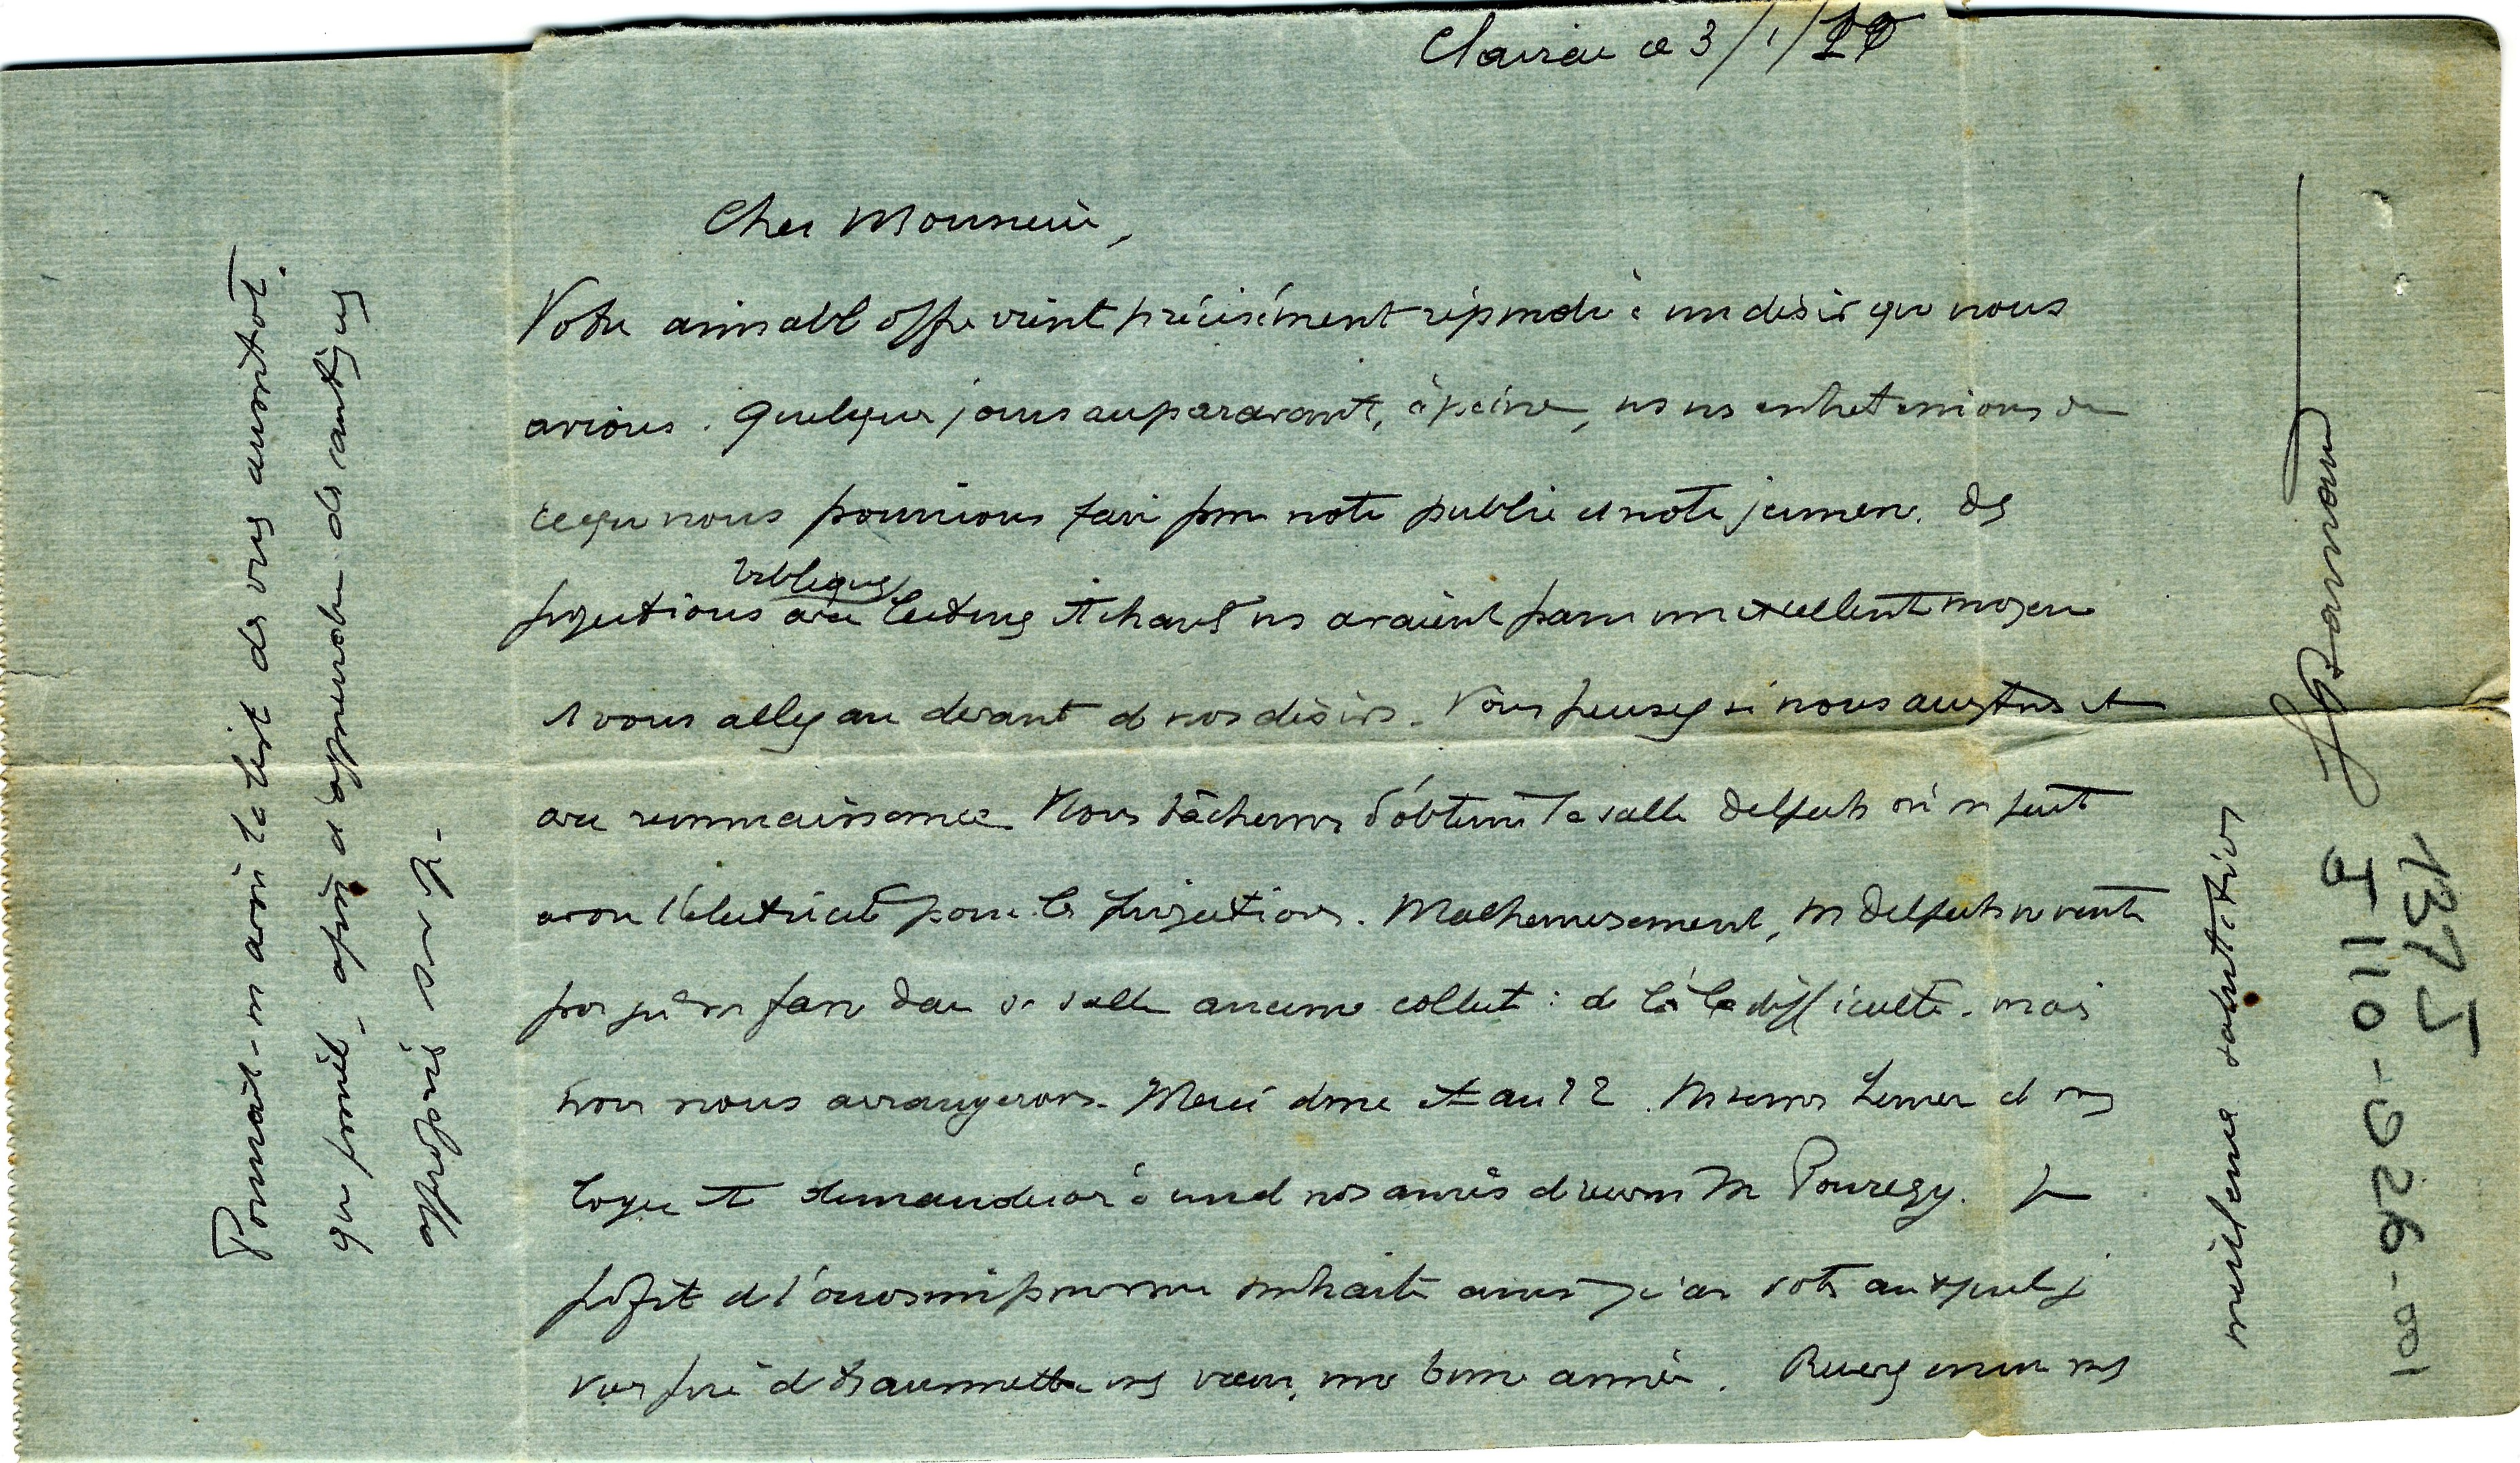 Clairac ce 3/1/
Cher Monsieur,
Votre aimable offre vient précisément répondre à un désir que nous
avions. Quelques jours auparavant, à peine, ns ns entretenions de
ce que nous pourrions faire pour notre public et notre jeunesse. Des
projections avec bibliques lectures et chants ns avaient paru un excellent moyen
et vous allez au devant de nos désirs. Vous pensez si nous acceptons et
avec reconnaissance. Nous tâcherons d'obtenir la salle Delpech où on peut
avoir l'électricité pour les projections. Malheureusement, M Delpech ne veut
pas qu'on fasse dans sa salle aucune collecte : de là la difficulté. mais
nous nous arrangerons. Merci donc et au 22.
loger et à un de nos amis de M Pouregy. Je
profite de l'occasion pour souhaiter ainsi qu'a
de transmettre nos vœux, une bonne année. Recevez nos
meilleures salutations
Pourrait-on avoir la liste de vos
que possible, afin d'apprendre des cantiques
appropriés svp.
137 J
J-110-926-